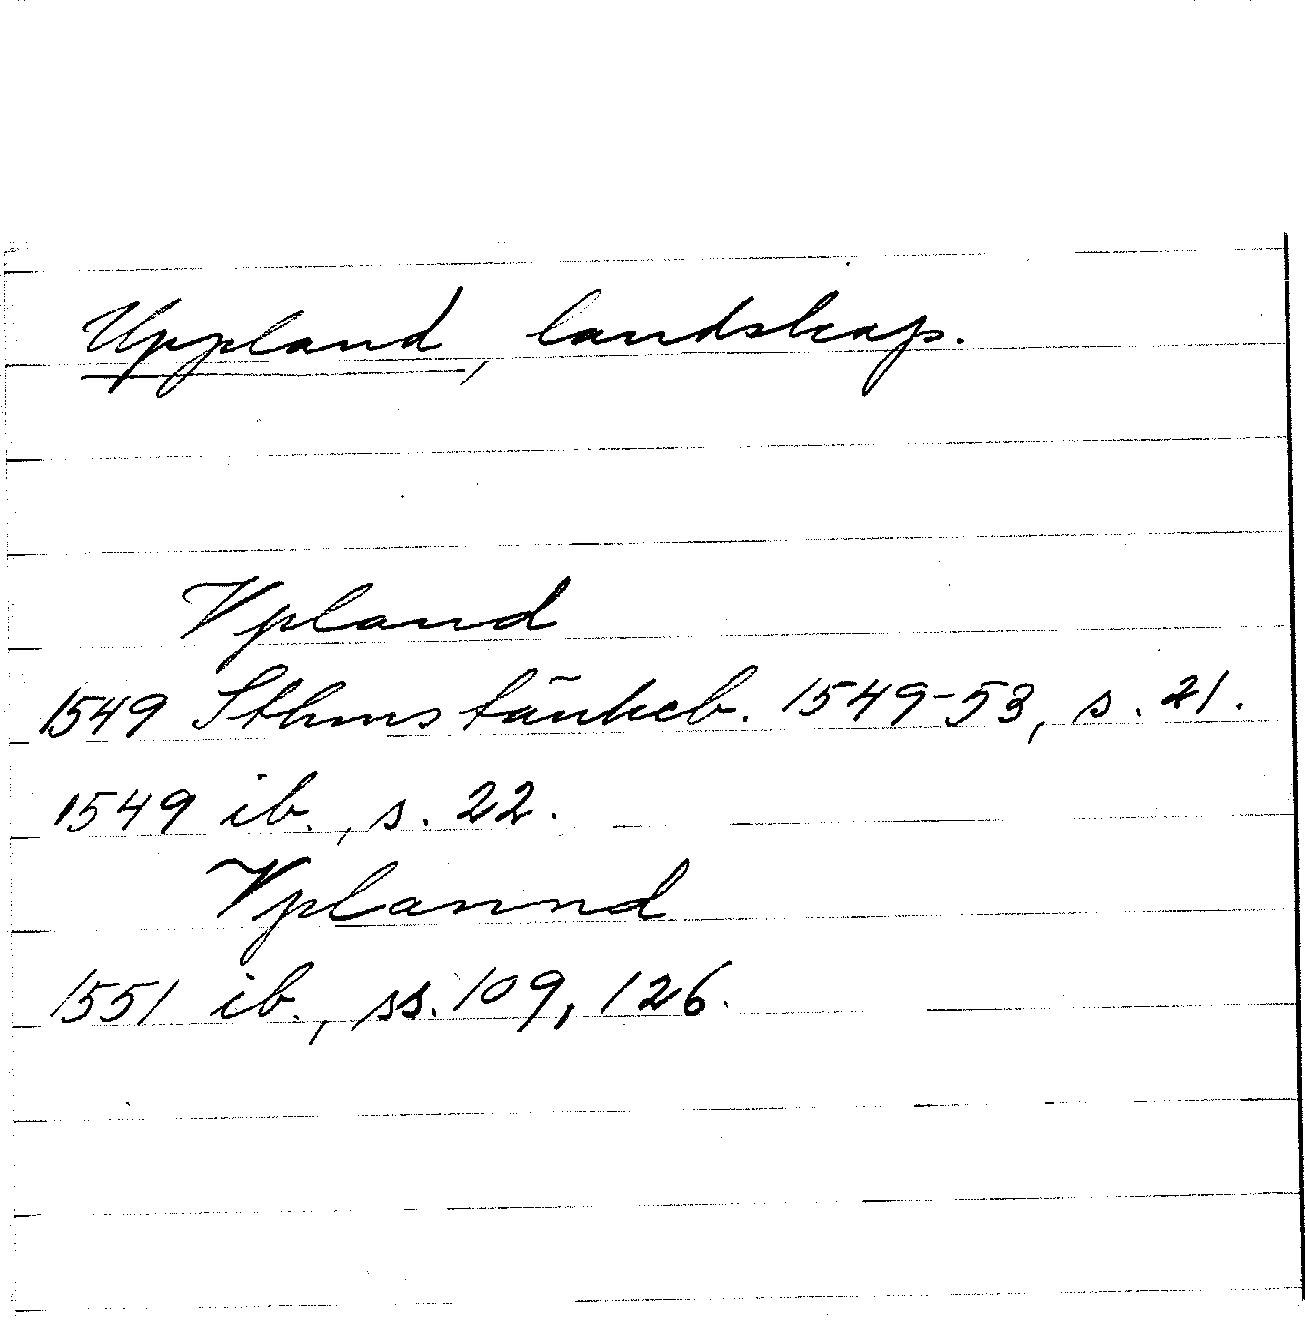 Uppland, landskap.
Vpland
1549 Sthms tänkeb. 1549-53, s. 21.
1549 ib., s. 22.
Vplannd
1551 ib., ss. 109, 126.